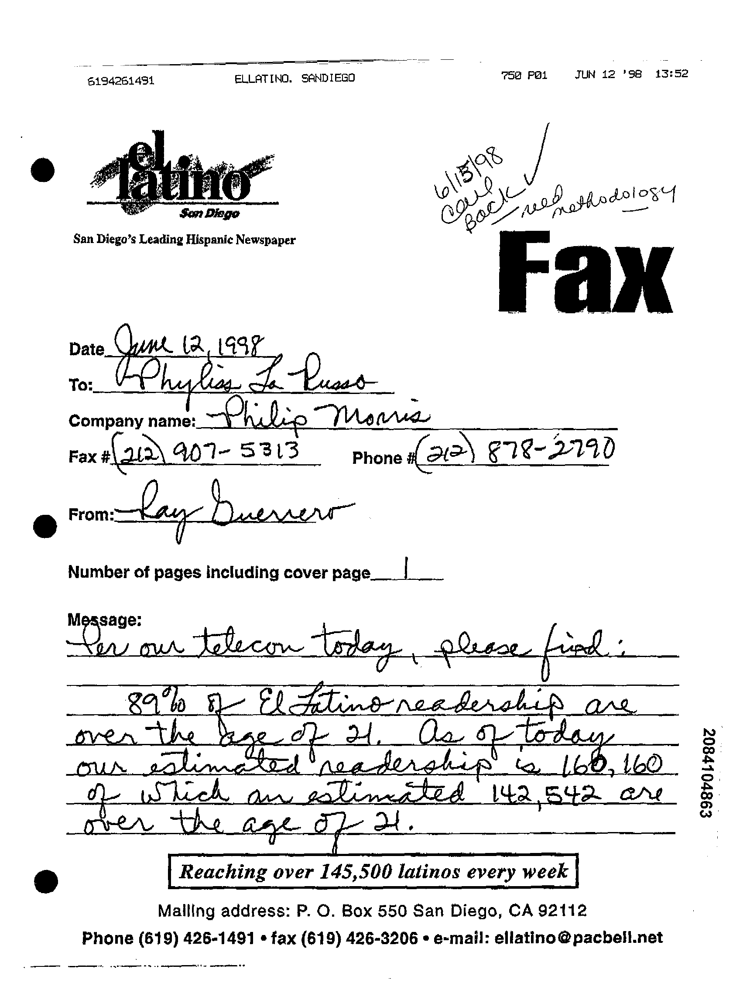 6194261491 ELLATINO. SANDIEGO 750 P01 JUN 12 '98 13:52
el
latino
San Diego
San Diego's Leading Hispanic Newspaper
6/15/98
Call
Back
need methodology
Fax
Date June 12, 1998
To: Phyliss La Russo
Company name: Philip Morris
Fax # (212) 907-5313 Phone # (212) 878-2790
From: Ray Guerrero
Number of pages including cover page 1
Message:
Per our telecon today, please find:
89% of El Latino readership are
over the age of 21. As of today
our estimated readership is 160,160
of which an estimated 142,542 are
over the age of 21.
2084104863
Reaching over 145,500 latinos every week
Mailing address: P. O. Box 550 San Diego, CA 92112
Phone (619) 426-1491 • fax (619) 426-3206 • e-mail: ellatino@pacbell.net